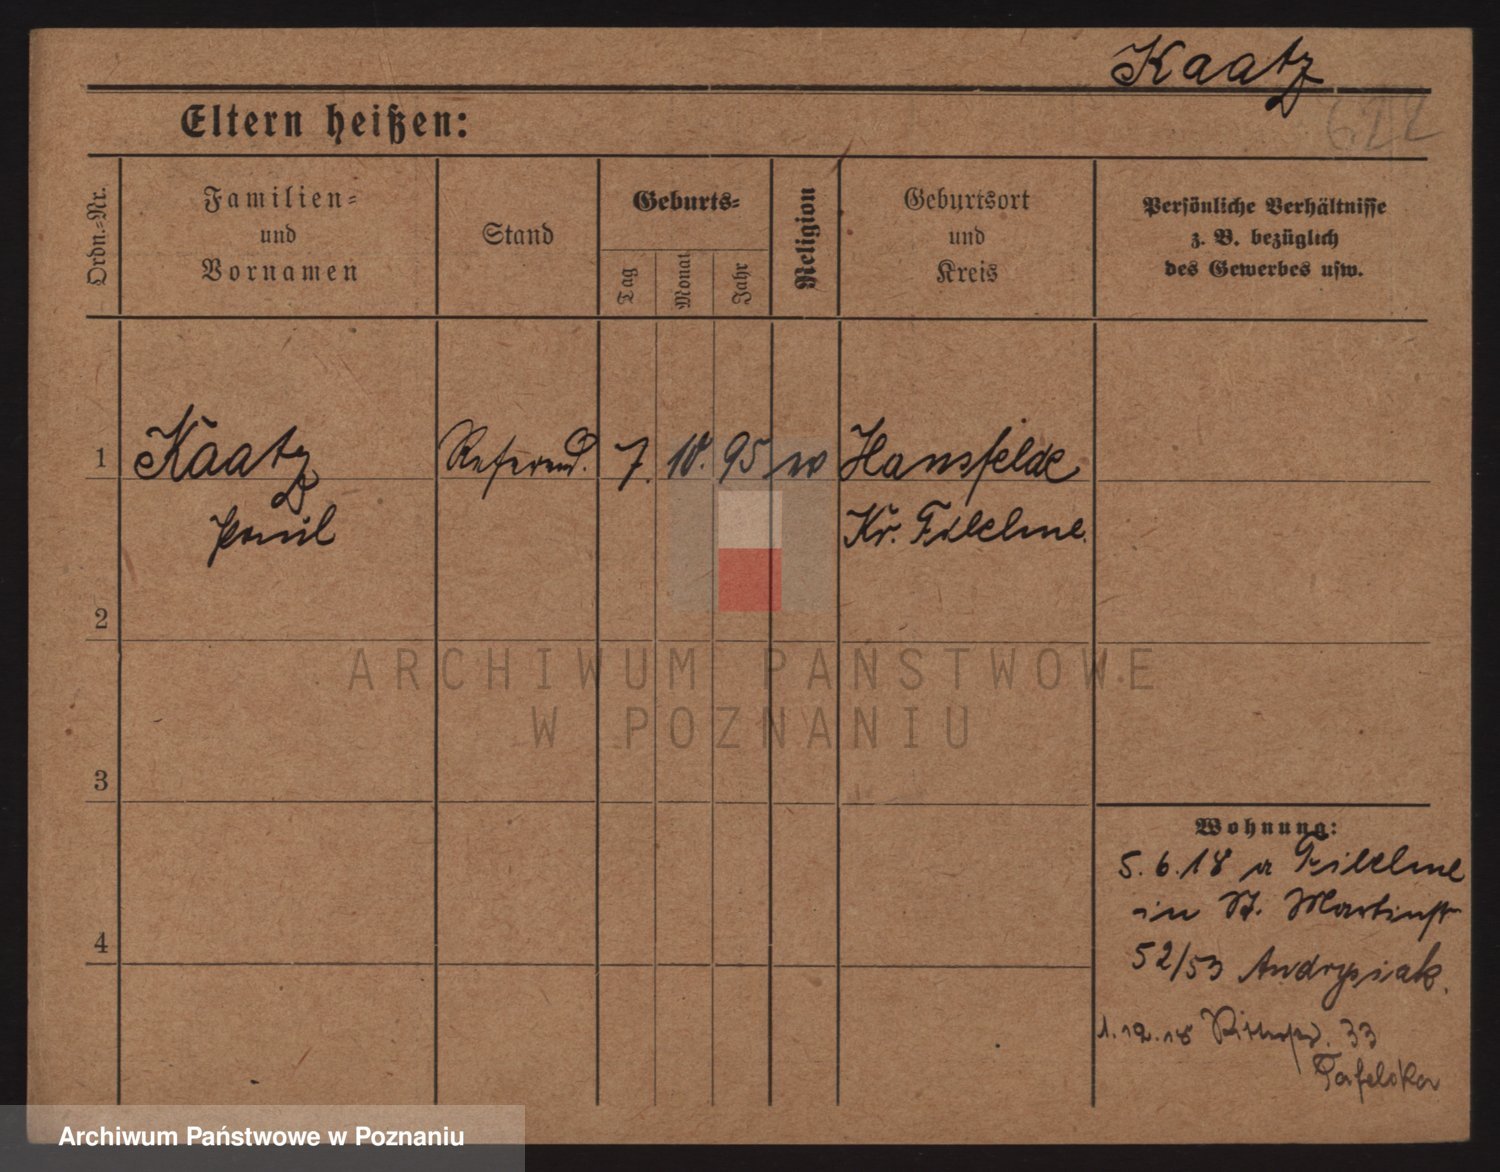 Kaatz
622
Eltern heißen:
Ordn.-Nr.
Familien-
und
Vornamen
Stand
Geburts-
Tag
Monat
Jahr
Religion
Geburtsort
und
Kreis
Persönliche Verhältnisse
z. B. bezüglich
des Gewerbes usw.
1 Kaatz Referend. 7. 10. 95 Hansfelde
Paul Kr. Filehne.
2
3
4
ARCHIWUM PAŃSTWOWE
W POZNANIU
Wohnung:
5.6.18 a Filehne
in St. Martinstr
52/53 Andrysiak.
1.12.18 33
Archiwum Państwowe w Poznaniu